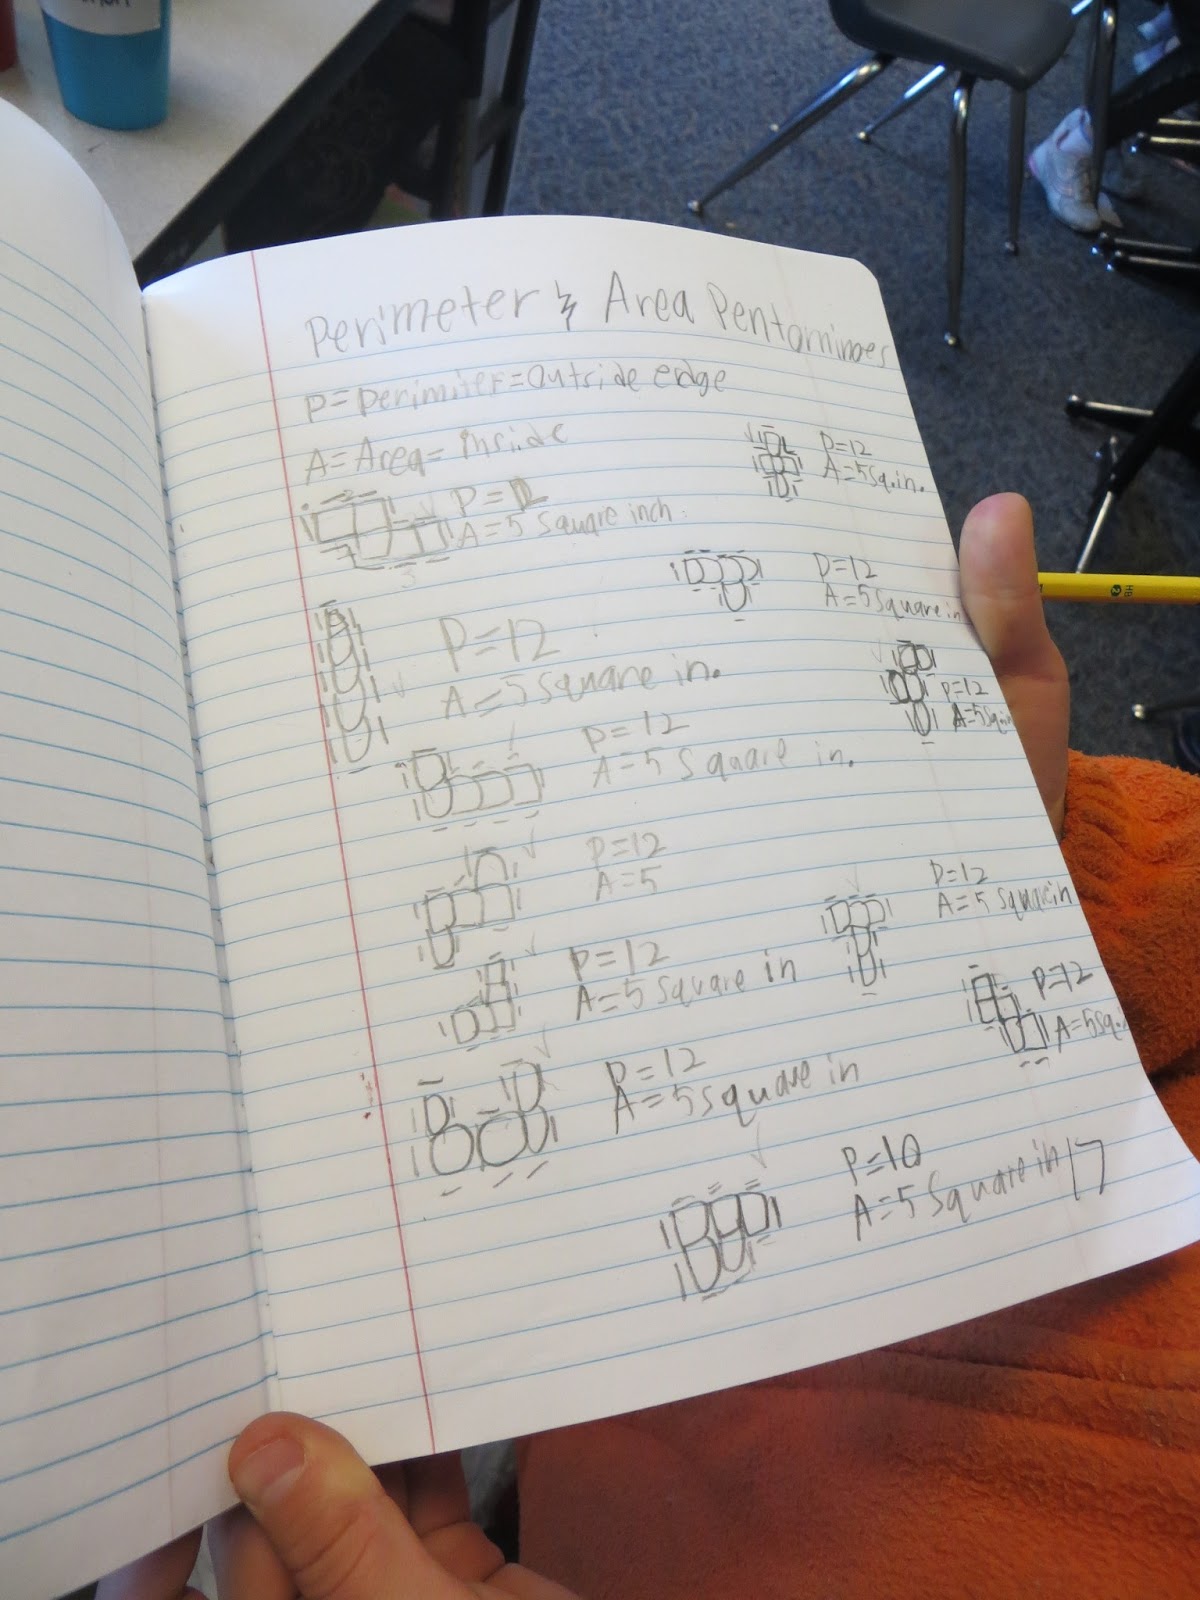 Perimeter & Area Pentominoes
P = perimiter = outside edge
A = Area = inside
P = 12
A = 5 square inch
P = 12
A = 5 square in.
P = 12
A = 5 square in.
P = 12
A = 5
P = 12
A = 5 square in
P = 12
A = 5 square in
P = 12
A = 5 sq. in.
P = 12
A = 5 square in
P = 12
A = 5 sq in
P = 12
A = 5 square in
P = 12
A = 5 sq.
P = 10
A = 5 square in 17
HB
2